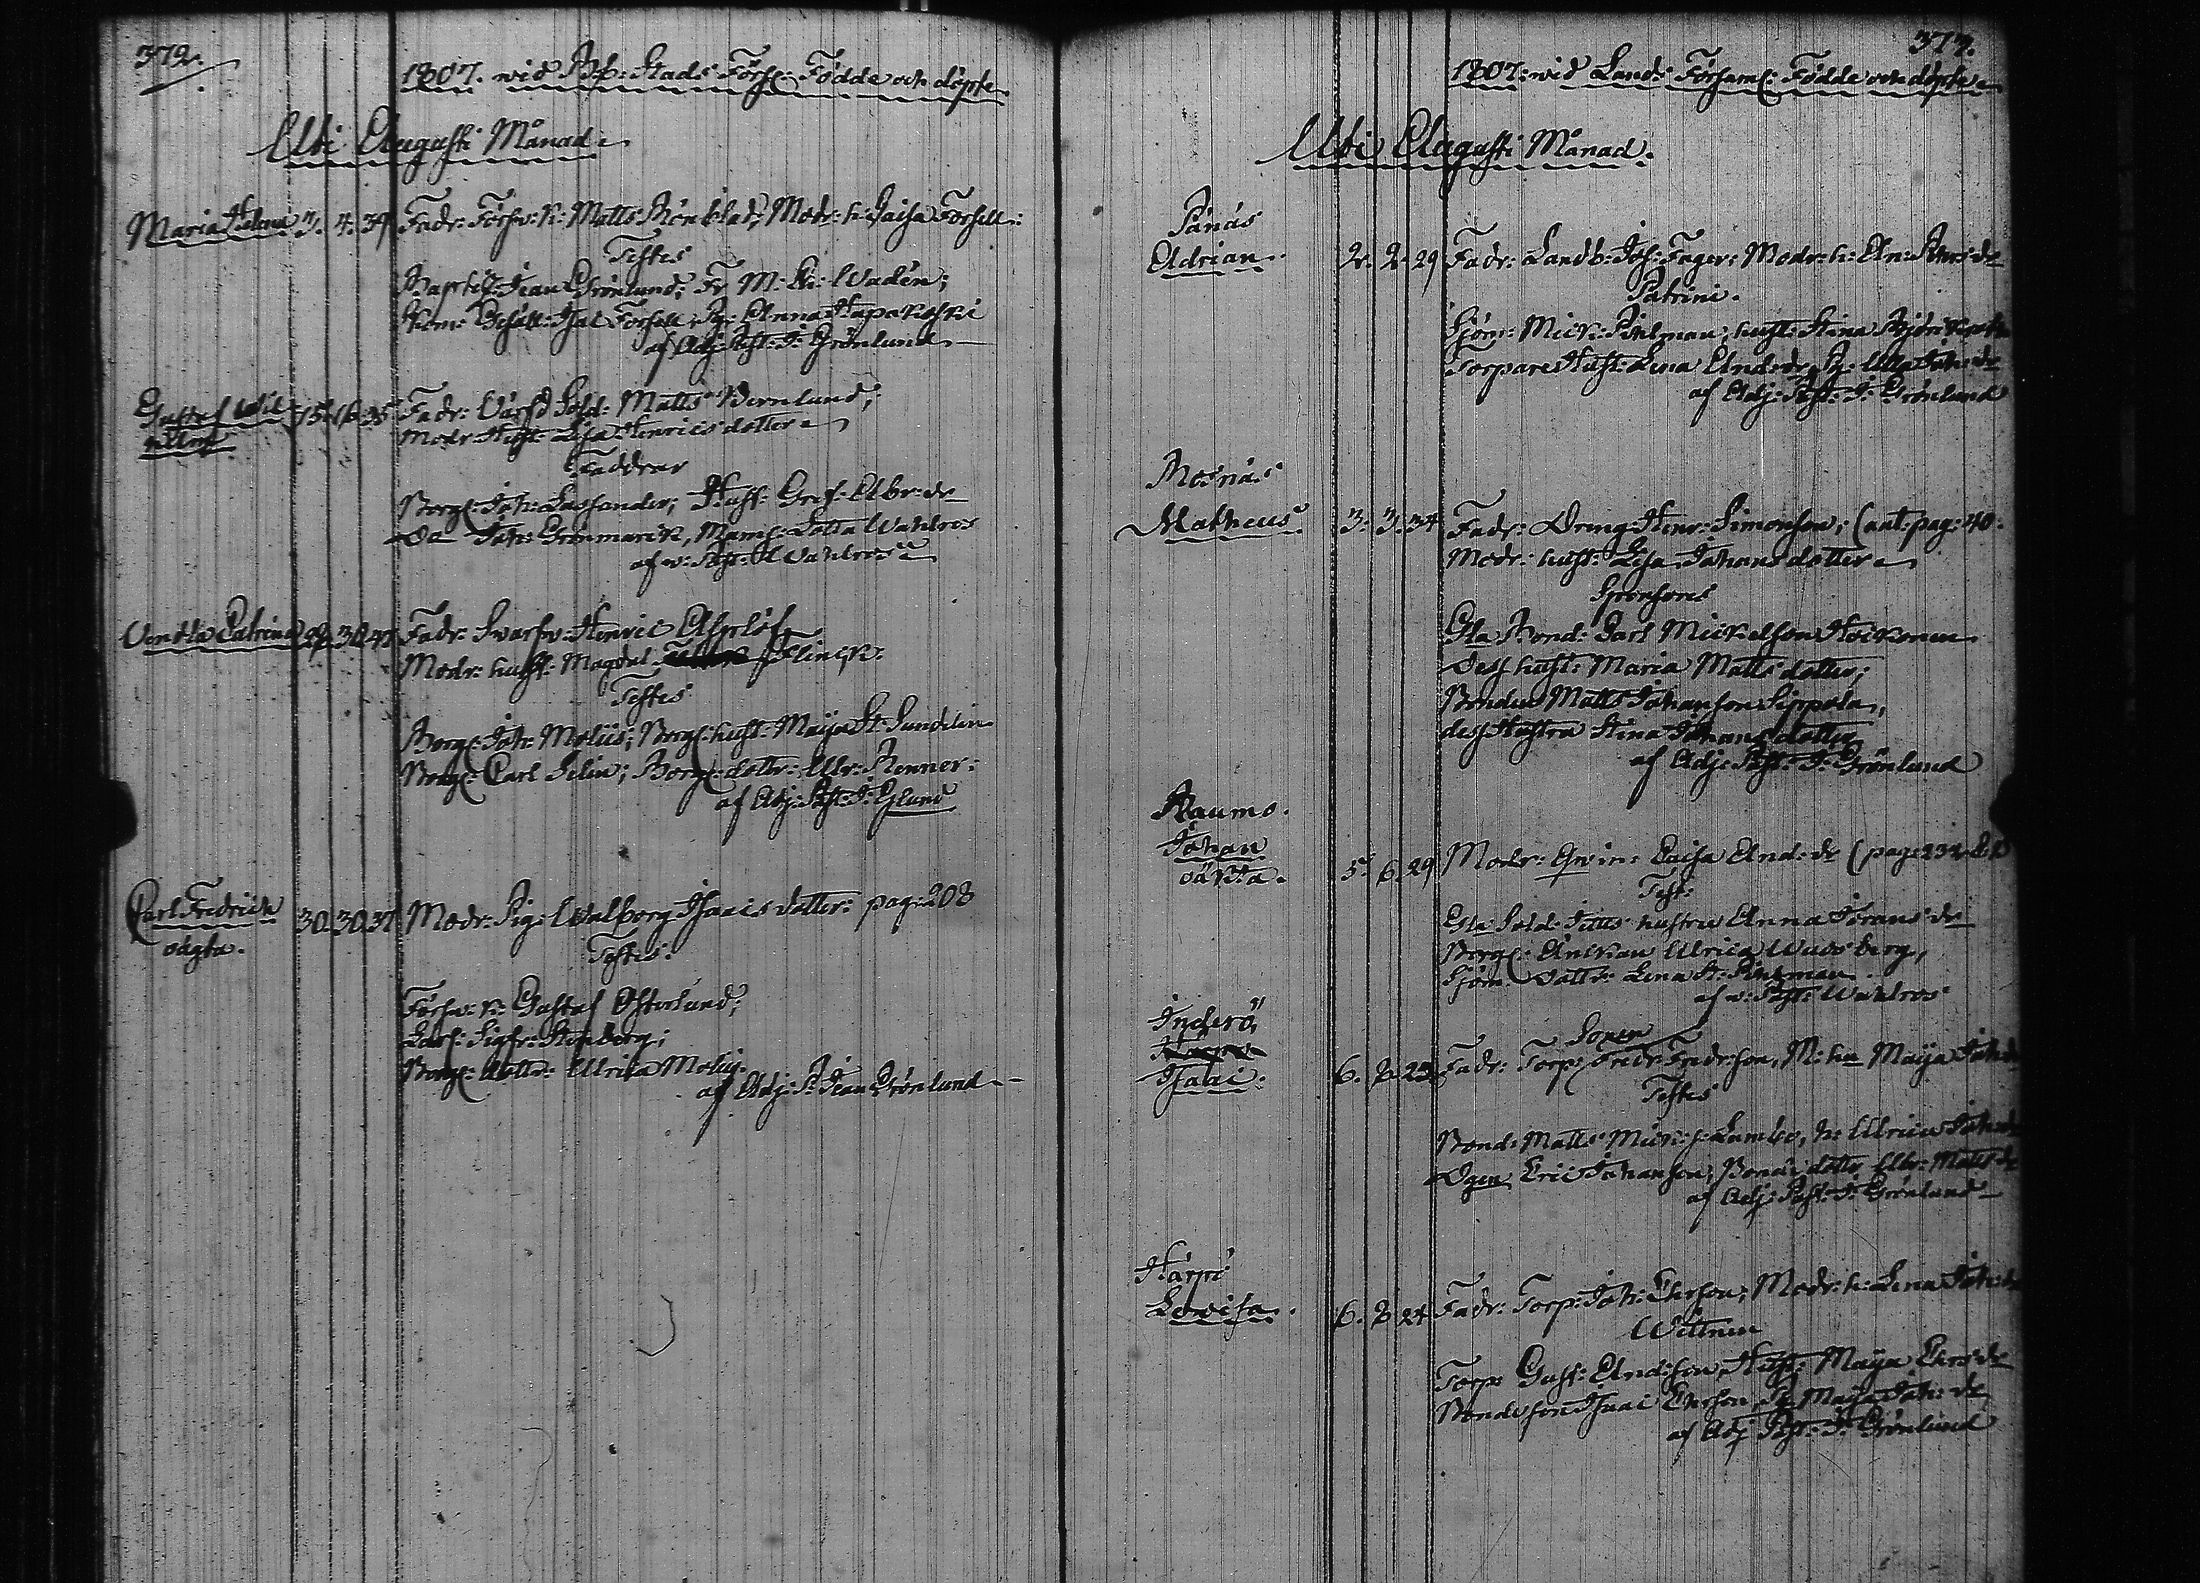 372.
1807. wid Stads Förs: Födde och döpte
Uti Augusti Månad
Maria Helena 3. 4. 39 Fadr: Förfw: K: Matts Rönblad; Modr: h: Caisa Forsell:
Testes
Jean Grönlund; Fr M: Wadén;
Isac Forsell, Anna
af Adj: Past: J: Grönlund
Gustaf Wil- 15. 16. 35 Fadr: Sold: Matts Wernlund;
helm Modr Hust: Lisa Henricsdotter
Faddrar
Borg: Joh: Hust: Gret: Abr: dr
Do Joh: Grönmarck, Mams: Lotta Wahlros
af v: Past: Wahlros
Vendla Catrina 29. 30. Fadr: Swarfw: Henric Asplöf
Modr: hust: Magdal Flinck.
Testes
Borg: Joh: Moliis; Borg: hust: Maija St: Sundelin
Borg: Carl Selin; Borg: dottr: Ulr: Renner:
af Adj: Past: J: Eglund
Carl Fredrick 30. 30. 37 Modr: Pig: Walborg Isaacs dotter: pag: 208
oägta.
Testes:
Förfw: K: Gustaf Österlund;
Sigfr: Stenberg;
Borg: dottr: Ulrika Moliis
af Adj: P: Jean Grönlund
373.
1807: wid Lands Församl: Födde och döpte
Uti Augusti Månad.
Pånäs
Adrian. 2. 2. 29 Fadr: Landb: Joh: Fager: Modr: h: An: dr
Patrini.
Sjöm: Mick: Pihlman, hust: Stina Björkqvist
Torpare Hust: Lena And: dr, Pg: Ulla Joh: dr
af Adj: Past: J: Grönlund
Mosnäs
Matheus 3. 3. 34 Fadr: Dreng: Henr: Simonson; (ant: pag: 40.
Modr: hust: Lisa Johans dotter
Sponsores
Gla Bond: Carl Mickelson Hoikonen
Dess hust: Maria Matts dotter;
Bonden Matts Johanson Sippola,
dess Hustru Stina Johans dotter
af Adj: Past: J: Grönlund
Raumo.
Johan 5. 6. 29 Modr: Qwin: Caisa And: dr (pag: 232
oäkta.
Test:
Gla Sold: hustru Anna Jörans dr
Borg: Änkan Ulrica Wadsberg,
Sjöm: Dottr: Lena St: Pihlman
af v: Past: Wahlros
Inderö
Isaac: 6. 7. 23 Fadr: Torp: Sonen Fredr: Fredr: son, M: hu Maija Joh: dr
Testes
Bond: Matts Mick: s: Lambo, h: Ulrica Joh: dr
Dgen Eric Johanson, Bonde dottr Ulr: Matts dr
af Adj: Past: J: Grönlund
Harpö
Lovisa. 6. 7. 24 Fadr: Torp: Joh: Ersson; Modr: h: Lena Joh: dr
Wittnen
Torp Gust: Andson, Hust: Maija Ers: dr
Bonde son Isaac Ersson, Pg Maija Joh: dr
af Adj Past: J: Grönlund